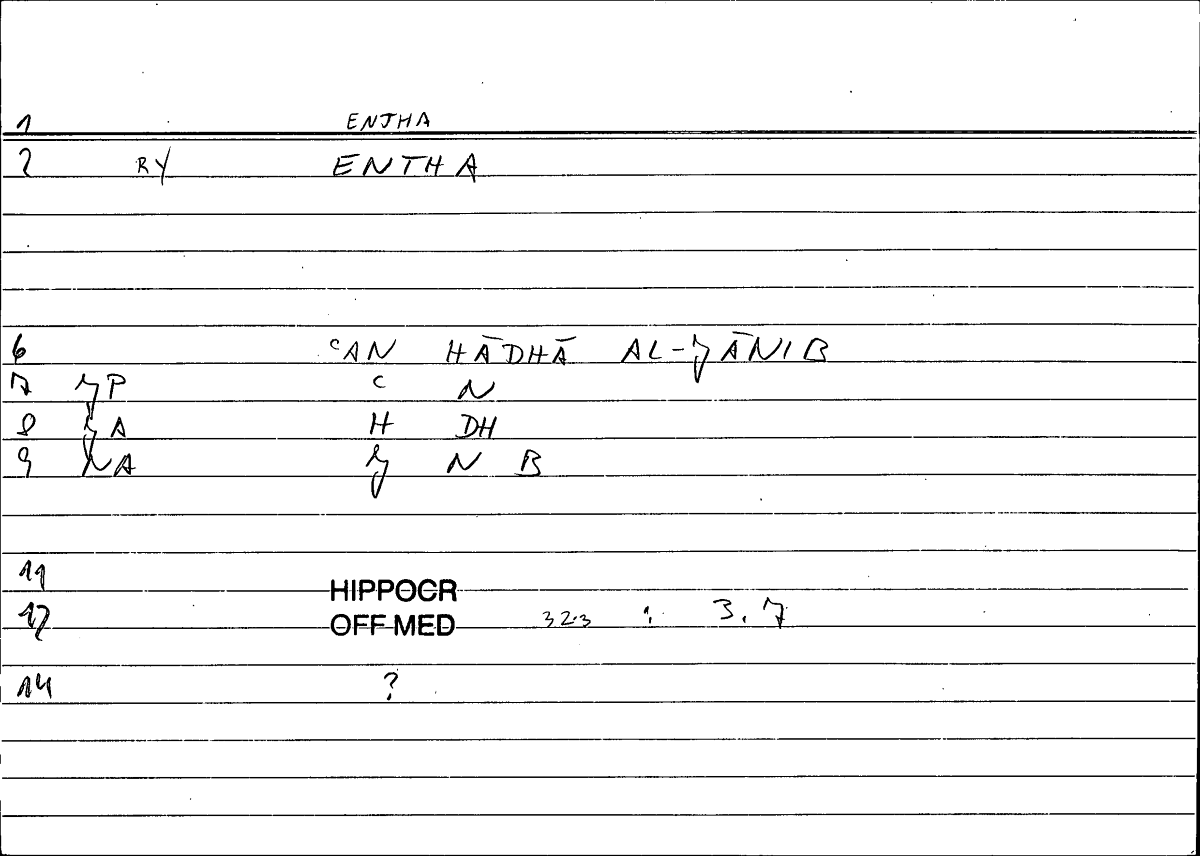 1 ENTHA
2 RY ENTHA
6 ʿAN HĀDHĀ AL-ǦĀNIB
7 P ʿ N
8 A H DH
9 NA Ǧ N B
11 HIPPOCR
12 OFF MED 323 : 3.7
14 ?